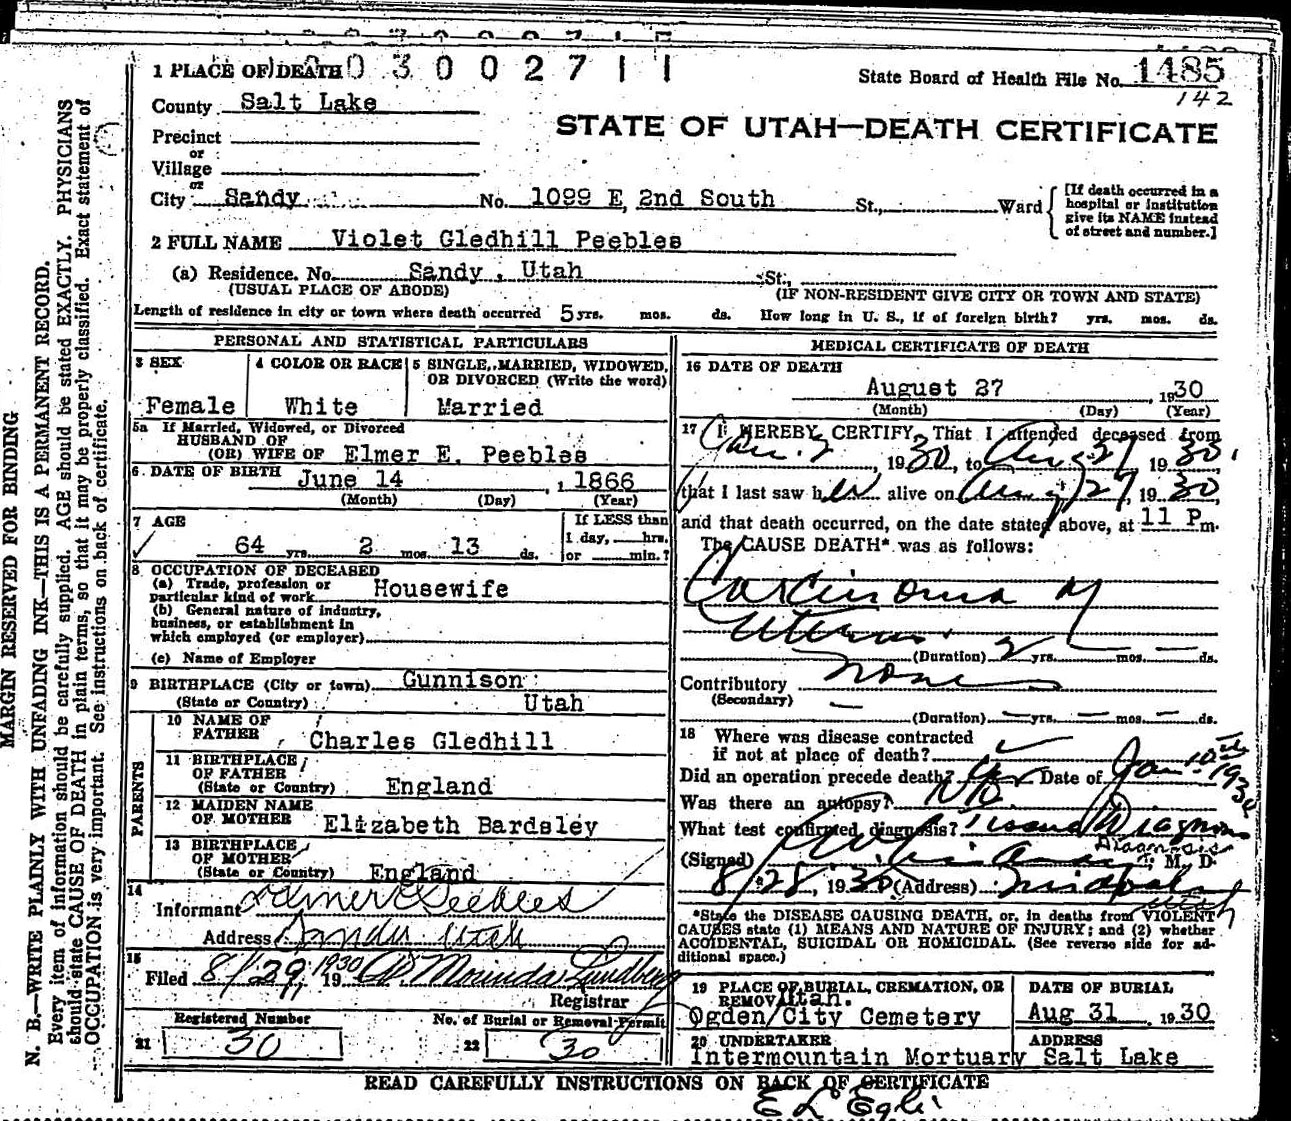 1 PLACE OF DEATH 0 3 0 0 2 7 1 1
State Board of Health File No. 1485
142
County Salt Lake
STATE OF UTAH—DEATH CERTIFICATE
Precinct
or
Village
or
City Sandy No. 1099 E, 2nd South St., Ward
[If death occurred in a
hospital or institution
give its NAME instead
of street and number.]
2 FULL NAME Violet Gledhill Peebles
(a) Residence. No. Sandy , Utah St.,
(USUAL PLACE OF ABODE) (IF NON-RESIDENT GIVE CITY OR TOWN AND STATE)
Length of residence in city or town where death occurred 5 yrs. mos. ds. How long in U. S., if of foreign birth? yrs. mos. ds.
PERSONAL AND STATISTICAL PARTICULARS
3 SEX
Female
4 COLOR OR RACE
White
5 SINGLE, MARRIED, WIDOWED,
OR DIVORCED (Write the word)
Married
5a If Married, Widowed, or Divorced
HUSBAND OF
(OR) WIFE OF Elmer E. Peebles
6 DATE OF BIRTH June 14 , 1866
(Month) (Day) (Year)
7 AGE
64 yrs. 2 mos. 13 ds.
If LESS than
1 day, hrs.
or min.?
8 OCCUPATION OF DECEASED
(a) Trade, profession or
particular kind of work Housewife
(b) General nature of industry,
business, or establishment in
which employed (or employer)
(c) Name of Employer
9 BIRTHPLACE (City or town) Gunnison
(State or Country) Utah
PARENTS
10 NAME OF
FATHER Charles Gledhill
11 BIRTHPLACE
OF FATHER
(State or Country) England
12 MAIDEN NAME
OF MOTHER Elizabeth Bardsley
13 BIRTHPLACE
OF MOTHER
(State or Country) England
14
Informant Elmer E Peebles
Address Sandy Utah
15
Filed 8/29, 1930 19 Morinda Lundberg
Registrar
Registered Number
21 30
No. of Burial or Removal Permit
22 30
MEDICAL CERTIFICATE OF DEATH
16 DATE OF DEATH
August 27 , 1930
(Month) (Day) (Year)
17 I HEREBY CERTIFY, That I attended deceased from
Jan. 2 , 1930, to Aug 27 1930,
that I last saw her alive on Aug 27, 1930,
and that death occurred, on the date stated above, at 11 P m.
The CAUSE DEATH* was as follows:
Carcinoma of
Uterus
(Duration) 2 yrs. — mos. — ds.
Contributory none
(Secondary)
(Duration) — yrs. — mos. — ds.
18 Where was disease contracted
if not at place of death?
Did an operation precede death? Yes Date of Jan 10th 1930
Was there an autopsy? No
What test confirmed diagnosis? Tissue Diagnosis
Diagnosis
(Signed) M. D.
8/28, 1930 (Address) Midvale
Utah
*State the DISEASE CAUSING DEATH, or, in deaths from VIOLENT
CAUSES state (1) MEANS AND NATURE OF INJURY; and (2) whether
ACCIDENTAL, SUICIDAL OR HOMICIDAL. (See reverse side for ad-
ditional space.)
19 PLACE OF BURIAL, CREMATION, OR
REMOVAL Utah.
Ogden City Cemetery
DATE OF BURIAL
Aug 31 , 1930
20 UNDERTAKER
Intermountain Mortuary
ADDRESS
Salt Lake
READ CAREFULLY INSTRUCTIONS ON BACK OF CERTIFICATE
E L Egli
MARGIN RESERVED FOR BINDING
N. B.—WRITE PLAINLY WITH UNFADING INK—THIS IS A PERMANENT RECORD.
Every item of information should be carefully supplied. AGE should be stated EXACTLY. PHYSICIANS
should state CAUSE OF DEATH in plain terms, so that it may be properly classified. Exact statement of
OCCUPATION is very important. See instructions on back of certificate.